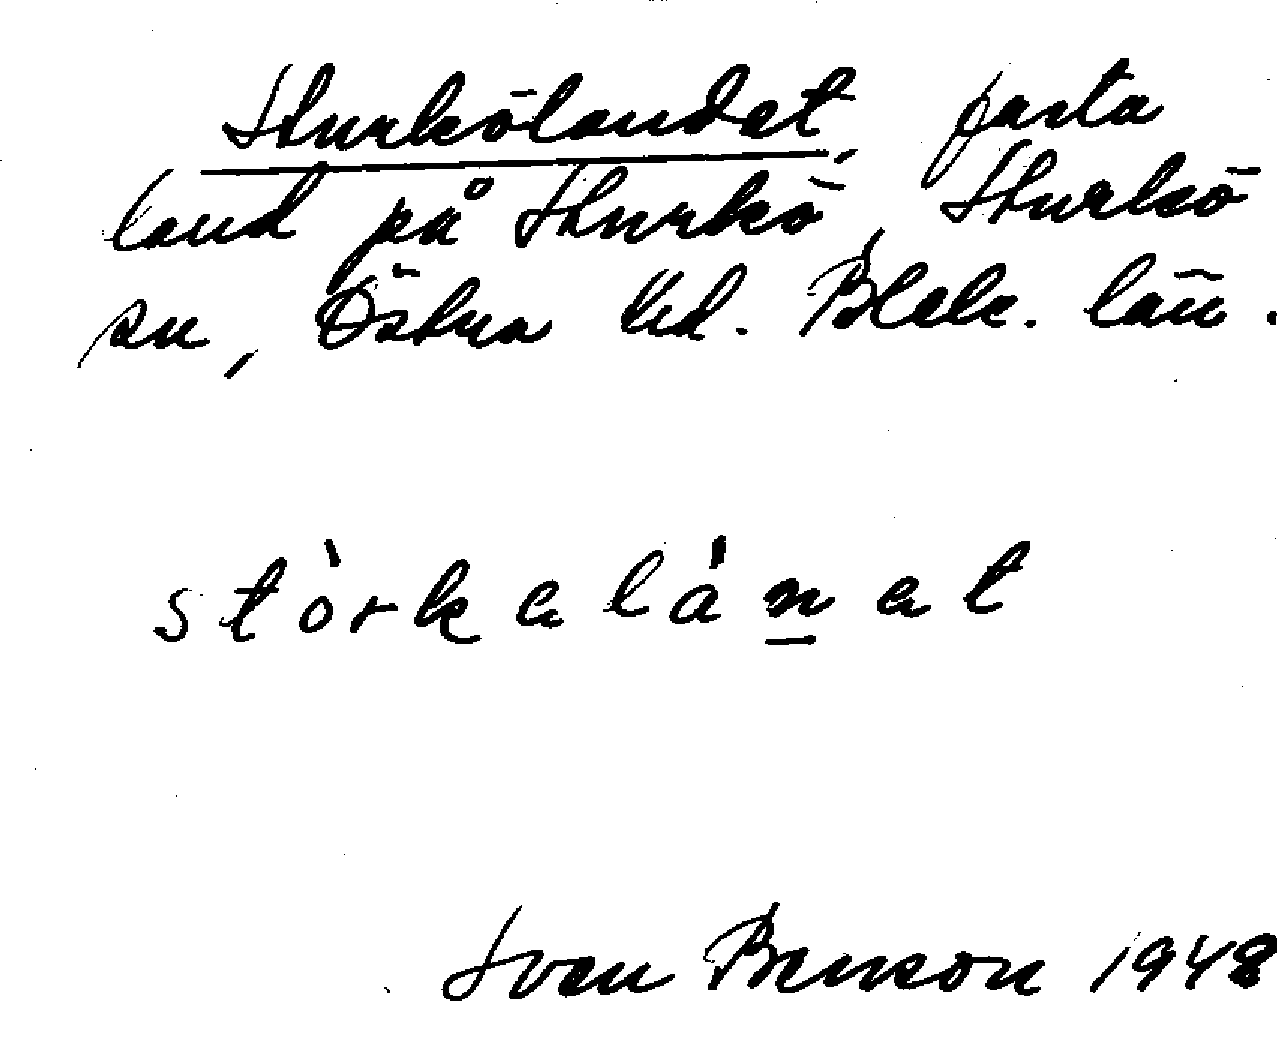 Sturkölandet, fasta
land på Sturkö, Sturkö
sn, Östra hd. Blek. län.
stòrkalánat
Sven Benson 1948